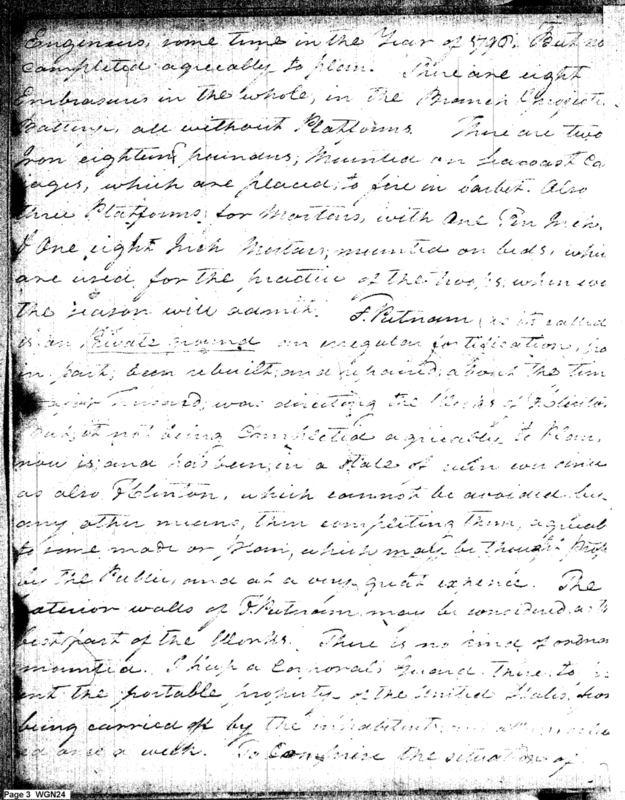 Engineers, some time in the Year of 1798. But no
completed agreeably to plan. There are eight
Embrasures in the whole, in the Branch
Battery, all without Platforms. There are two
Iron eighteen pounders, Mounted on Seacoast Ca
ages, which are placed to fire in barbet. Also
three Platforms for Mortars, with One Ten Inch,
& One eight Inch Mortars, mounted on beds, whi
are used for the practice of the troops, when
the season will admit. F. Putnam, as it is called
is on Private ground an irregular fortification,
in part, been rebuilt and repaired, about the tim
was directing the Works of F Clinton
but not being Completed agreeably to Plan,
now is, and has been, in a State of ruin ever since
as also F Clinton, which cannot be avoided by
any other means, than completing them, agreeab
to some mode or plan, which may be thought prop
by the Public, and at a very great expence. The
exterior walls of F. Putnam may be considered as the
best part of the Works. There is no kind of ordnan
mounted. I keep a Corporal's Guard there to
ent the portable property of the United States, from
being carried off by the inhabitents,
ed once a week. To Comprise the situation of
Page 3 WGN24